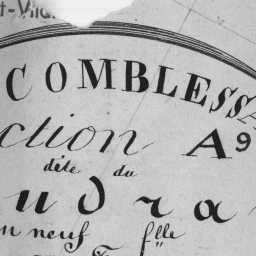 t-Vita
COMBLESSA
ction A9
dite du
udra
n neuf flle